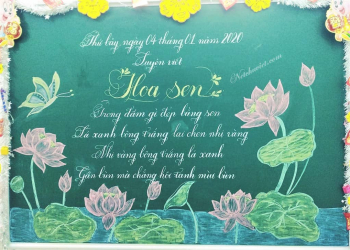 Thứ bảy, ngày 04 tháng 01 năm 2020
Luyện viết
Hoa sen
Trong đầm gì đẹp bằng sen
Lá xanh bông trắng lại chen nhụy vàng
Nhụy vàng bông trắng lá xanh
Gần bùn mà chẳng hôi tanh mùi bùn